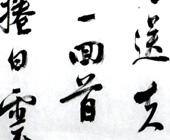 送夫
一回首
捲白雲